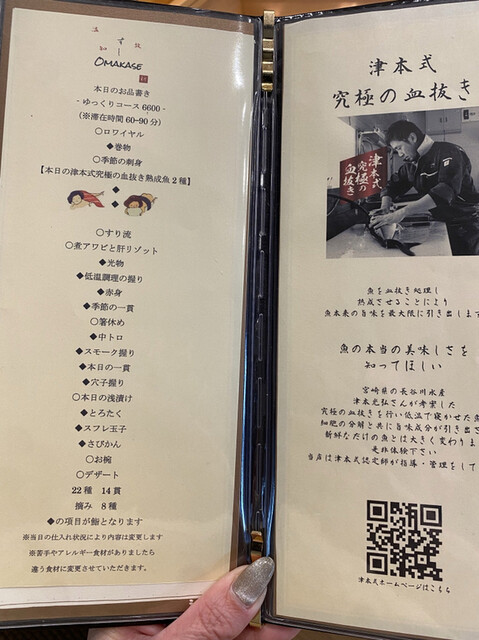 OMAKASE
本日のお品書き
- ゆっくりコース 6600 -
(※滞在時間 60-90 分)
○ロワイヤル
◆巻物
○季節の刺身
【本日の津本式究極の血抜き熟成魚 2 種】
◆
◆
○すり流
○煮アワビと肝リゾット
◆光物
◆低温調理の握り
◆赤身
◆季節の一貫
○箸休め
◆中トロ
◆スモーク握り
◆本日の一貫
◆穴子握り
○本日の浅漬け
◆とろたく
◆スフレ玉子
◆さびかん
○お椀
○デザート
22 種 14 貫
摘み 8 種
◆の項目が鮨となります
※当日の仕入れ状況により内容は変更します
※苦手やアレルギー食材がありましたら
違う食材に変更させていただきます。
津本式
究極の血抜き
津本式
究極の
血抜き
魚を血抜き処理し
熟成させることにより
魚本来の旨味を最大限に引き出します
魚の本当の美味しさを
知ってほしい
宮崎県の長谷川水産
津本光弘さんが考案した
究極の血抜きを行い低温で寝かせた魚
細胞の分解と共に旨味成分が引き出さ
新鮮なだけの魚とは大きく変わりま
是非体験下さい
当店は津本式認定師が指導・管理をして
津本式ホームページはこちら